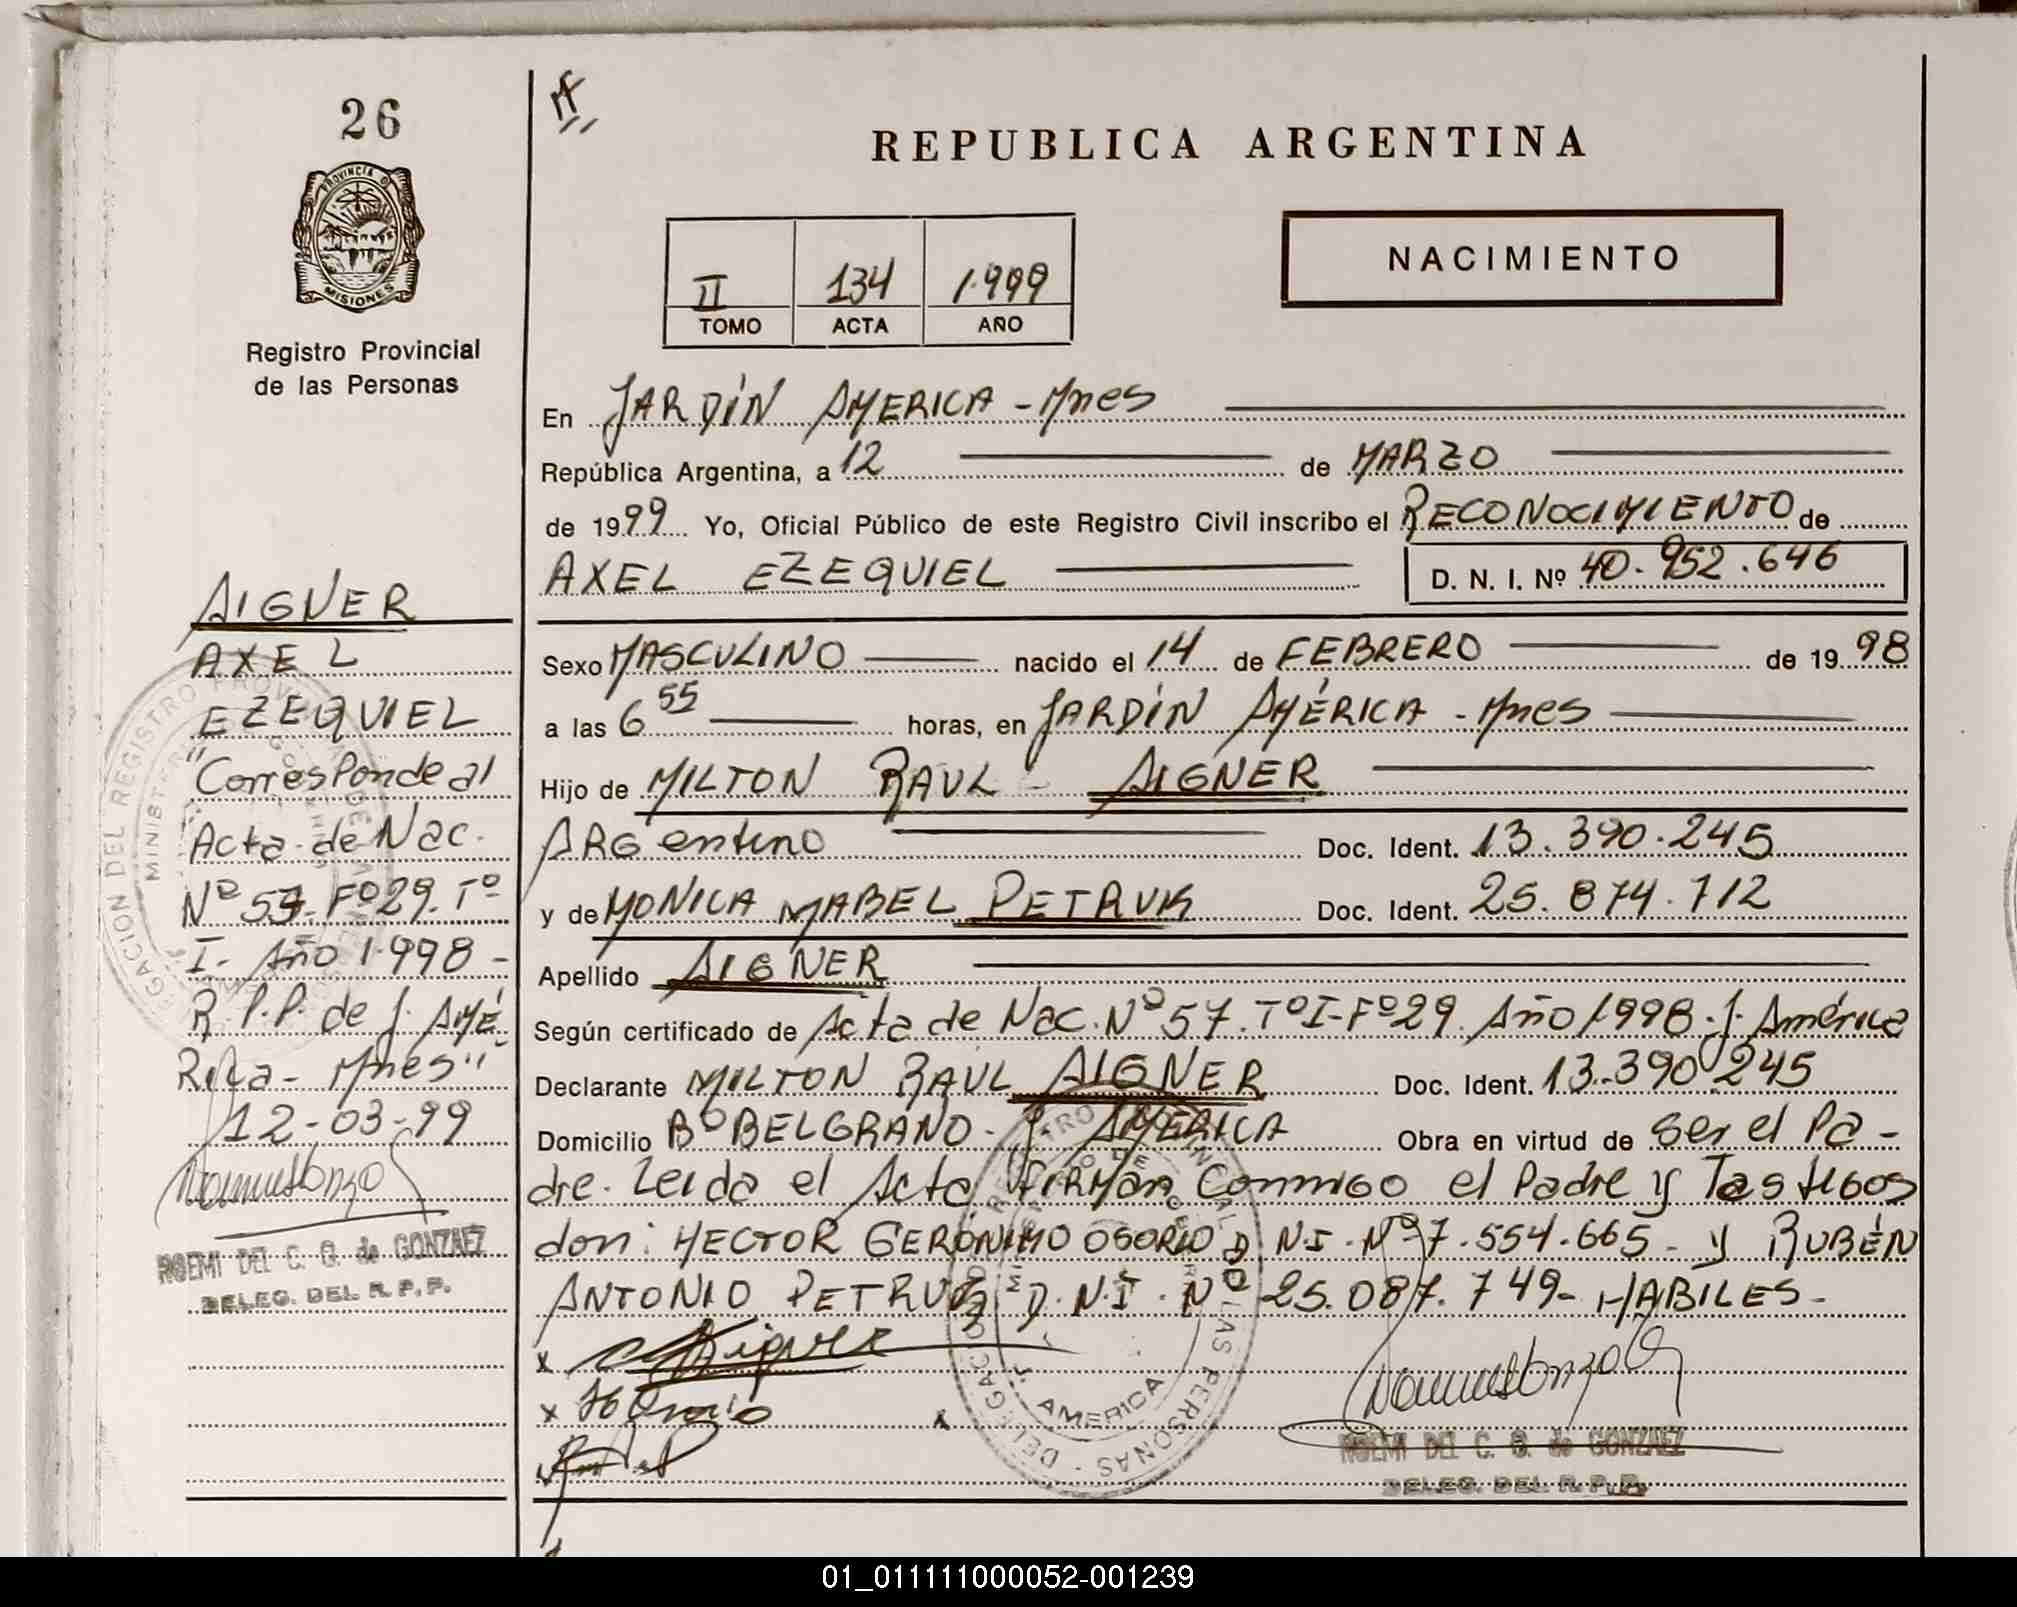 26
PROVINCIA D
MISIONES
Registro Provincial
de las Personas
AIGNER
AXEL
EZEQUIEL
"Corresponde al
Acta de Nac.
Nº 57. Fº 29. Tº
I. Año 1.998 -
R.P.P. de J. AMÉ
Rica - Mnes"
12-03-99
NOEMI DEL C. G. de GONZALEZ
DELEG. DEL R. P. P.
REPUBLICA ARGENTINA
II 134 1.999
TOMO ACTA AÑO
NACIMIENTO
En JARDÍN AMERICA - Mnes
República Argentina, a 12 de MARZO
de 1999 Yo, Oficial Público de este Registro Civil inscribo el RECONOCIMIENTO de
AXEL EZEQUIEL D. N. I. Nº 40.952.646
Sexo MASCULINO nacido el 14 de FEBRERO de 1998
a las 6 55 horas, en JARDÍN AMÉRICA - Mnes
Hijo de MILTON RAUL AIGNER
ARGentino Doc. Ident. 13.390.245
y de MONICA MABEL PETRUK Doc. Ident. 25.874.712
Apellido AIGNER
Según certificado de Acta de Nac. Nº 57. Tº I - Fº 29. Año 1998 - J. América
Declarante MILTON RAUL AIGNER Doc. Ident. 13.390.245
Domicilio Bº BELGRANO - J. AMERICA Obra en virtud de ser el Pa -
dre. Leida el Acta FIRMAn Conmigo el Padre y Testigos
don: HECTOR GERÓNIMO OSORIO D.N.I. Nº 7.554.665 - y RUBÉN
ANTONIO PETRUK D.N.I. Nº 25.087.749 - HABILES -
x Aigner
x H Osorio x
x
J. AMERICA
NOEMI DEL C. G. de GONZALEZ
DELEG. DEL R. P. P.
01_011111000052-001239